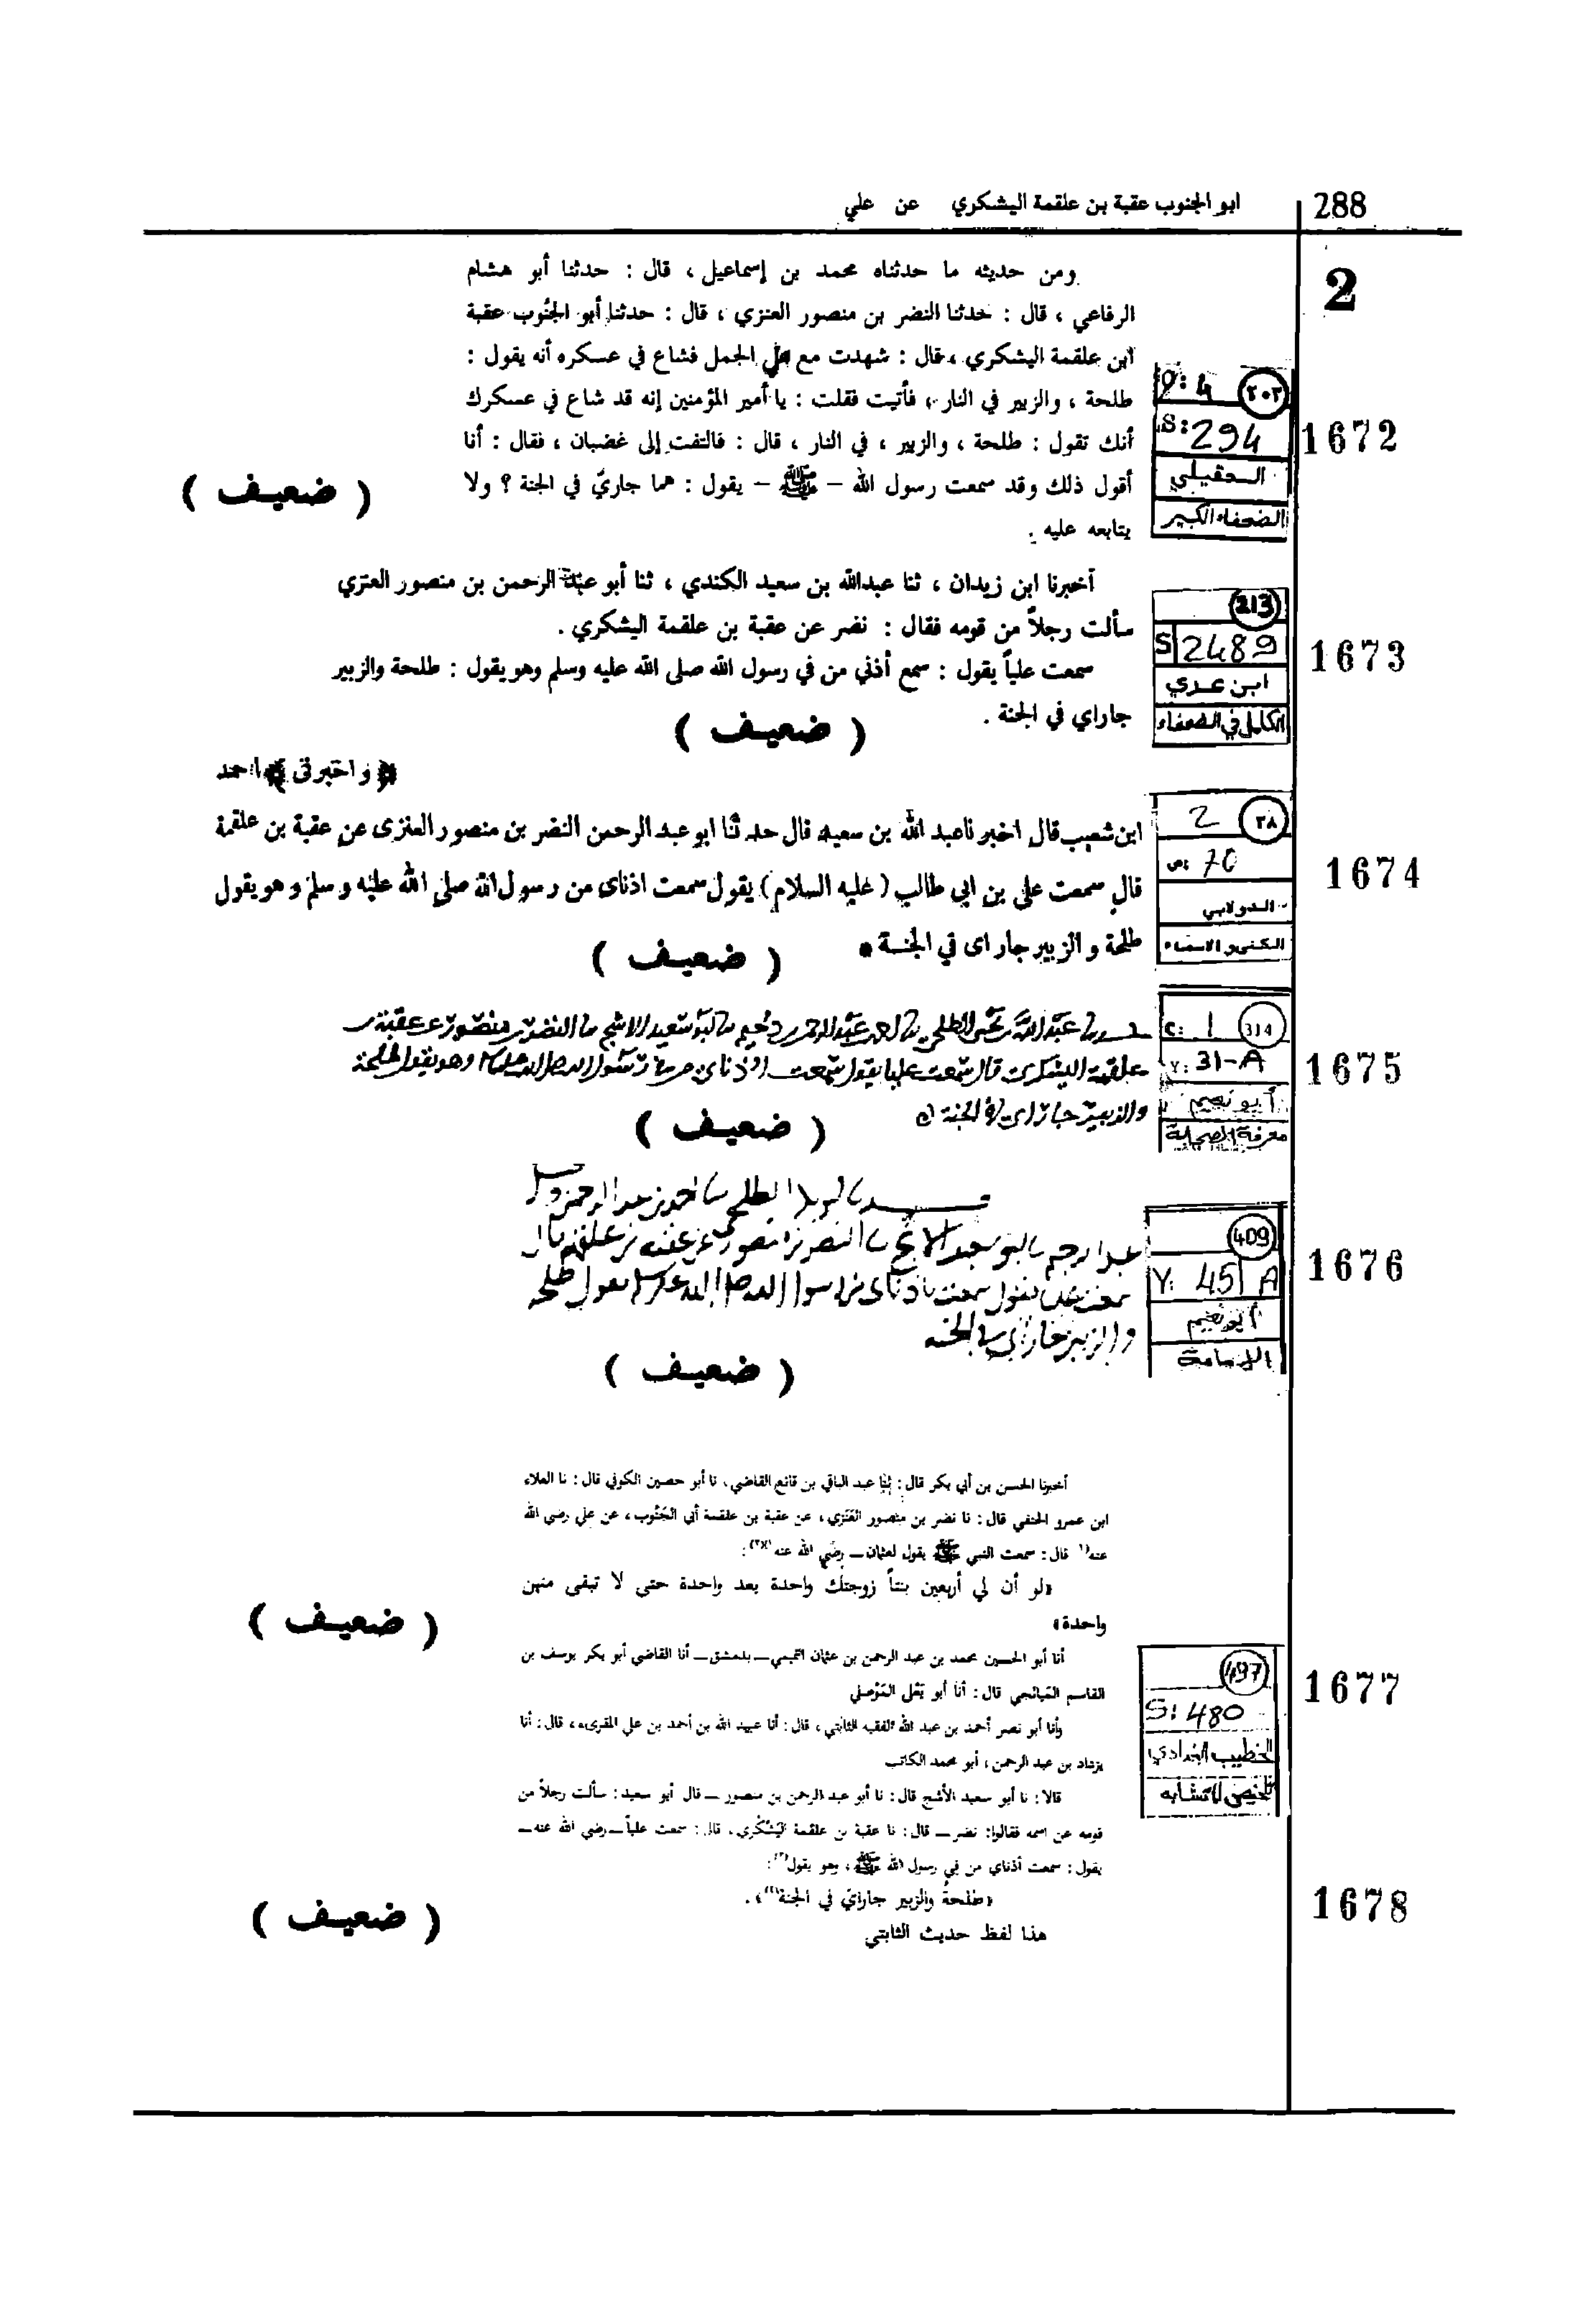 288
ابو الجنوب عقبة بن علقمة اليشكري عن علي
2
ومن حديثه ما حدثناه محمد بن إسماعيل ، قال : حدثنا أبو هشام
الرفاعي ، قال : حدثنا النضر بن منصور العنزي ، قال : حدثنا أبو الجنُوب عقبة
ابن علقمة اليشكري ، قال : شهدت مع علي الجمل فشاع في عسكره أنه يقول :
طلحة ، والزبير في النار ، فأتيت فقلت : يا أمير المؤمنين إنه قد شاع في عسكرك
أنك تقول : طلحة ، والزبير ، في النار ، قال : فالتفت إلى غضبان ، فقال : أنا
أقول ذلك وقد سمعت رسول الله – ﷺ – يقول : هما جاريّ في الجنة ؟ ولا
يتابعه عليه .
( ضعيف )
٢٠٣
4
S: 294
العقيلي
الضعفاء الكبير
1672
أخبرنا ابن زيدان ، ثنا عبدالله بن سعيد الكندي ، ثنا أبو عبد الرحمن بن منصور العنزي
سألت رجلاً من قومه فقال : نضر عن عقبة بن علقمة اليشكري .
سمعت علياً يقول : سمع أذني من في رسول الله صلى الله عليه وسلم وهو يقول : طلحة والزبير
جاراي في الجنة .
( ضعيف )
213
S 2489
ابن عدي
الكامل في الضعفاء
1673
﴿و اخبرنى﴾ احمد
ابن شعيب قال اخبرنا عبد الله بن سعيد قال حدثنا ابو عبد الرحمن النضر بن منصور العنزى عن عقبة بن علقمة
قال سمعت على بن ابى طالب ( عليه السلام ) يقول سمعت اذناى من رسول الله صلى الله عليه وسلم وهو يقول
طلحة و الزبير جاراى في الجنة •
( ضعيف )
٣٨
2
ص: 70
الدولابي
الكنى و الاسماء
1674
عبد الله بن يحيى الطلحي أبو سعيد الاشج النضر بن منصور عن عقبة بن
علقمة اليشكري قال سمعت عليا يقول سمعت اذناي من رسول الله صلى الله عليه وسلم وهو يقول طلحة
والزبير جاراي في الجنة
( ضعيف )
314
C: 1
Y: 31-A
أبو نعيم
معرفة الصحابة
1675
الطلحي احمد بن عبد الرحمن
النضر بن منصور عن عقبة بن علقمة قال
سمعت علي يقول سمعت اذناي من رسول الله صلى الله عليه وسلم يقول طلحة
والزبير جاراي في الجنة
( ضعيف )
409
Y: 45 A
أبو نعيم
الإمامة
1676
أخبرنا الحسن بن أبي بكر قال : ثنا عبد الباقي بن قانع القاضي ، نا أبو حصين الكوفي قال : نا العلاء
ابن عمرو الحنفي قال : نا نضر بن منصور العَنَزي ، عن عقبة بن علقمة أبي الجَنُوب ، عن علي رضي الله
عنه قال : سمعت النبي ﷺ يقول لعثمان – رضي الله عنه :
«لو أن لي أربعين بنتاً زوجتك واحدة بعد واحدة حتى لا تبقى منهن
واحدة»
( ضعيف )
أنا أبو الحسين محمد بن عبد الرحمن بن عثمان التميمي – بدمشق – أنا القاضي أبو بكر يوسف بن
القاسم المَيَانَجي قال : أنا أبو يَعْلَى المَوْصلي
وأنا أبو نصر أحمد بن عبد الله الفقيه الثابتي ، قال : أنا عبيد الله بن أحمد بن علي المقرىء ، قال : أنا
يزداد بن عبد الرحمن ، أبو محمد الكاتب
497
S: 480
الخطيب البغدادي
تلخيص المتشابه
1677
قالا : نا أبو سعيد الأشج قال : نا أبو عبد الرحمن بن منصور – قال أبو سعيد : سألت رجلاً من
قومه عن اسمه فقالوا : نضر – قال : نا عقبة بن علقمة اليَشْكُري ، قال : سمعت علياً – رضي الله عنه –
يقول : سمعت أذناي من في رسول الله ﷺ ، وهو يقول :
«طلحةُ والزبير جارايَ في الجنة» .
هذا لفظ حديث الثابتي
( ضعيف )
1678